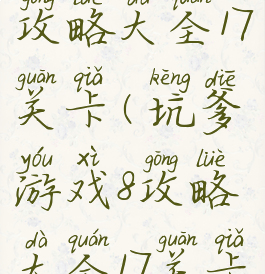 gōng lüè dà quán
攻略大全17
guān qiǎ kēng diē
关卡(坑爹
yóu xì gōng lüè
游戏8攻略
dà quán guān qiǎ
大全17关卡